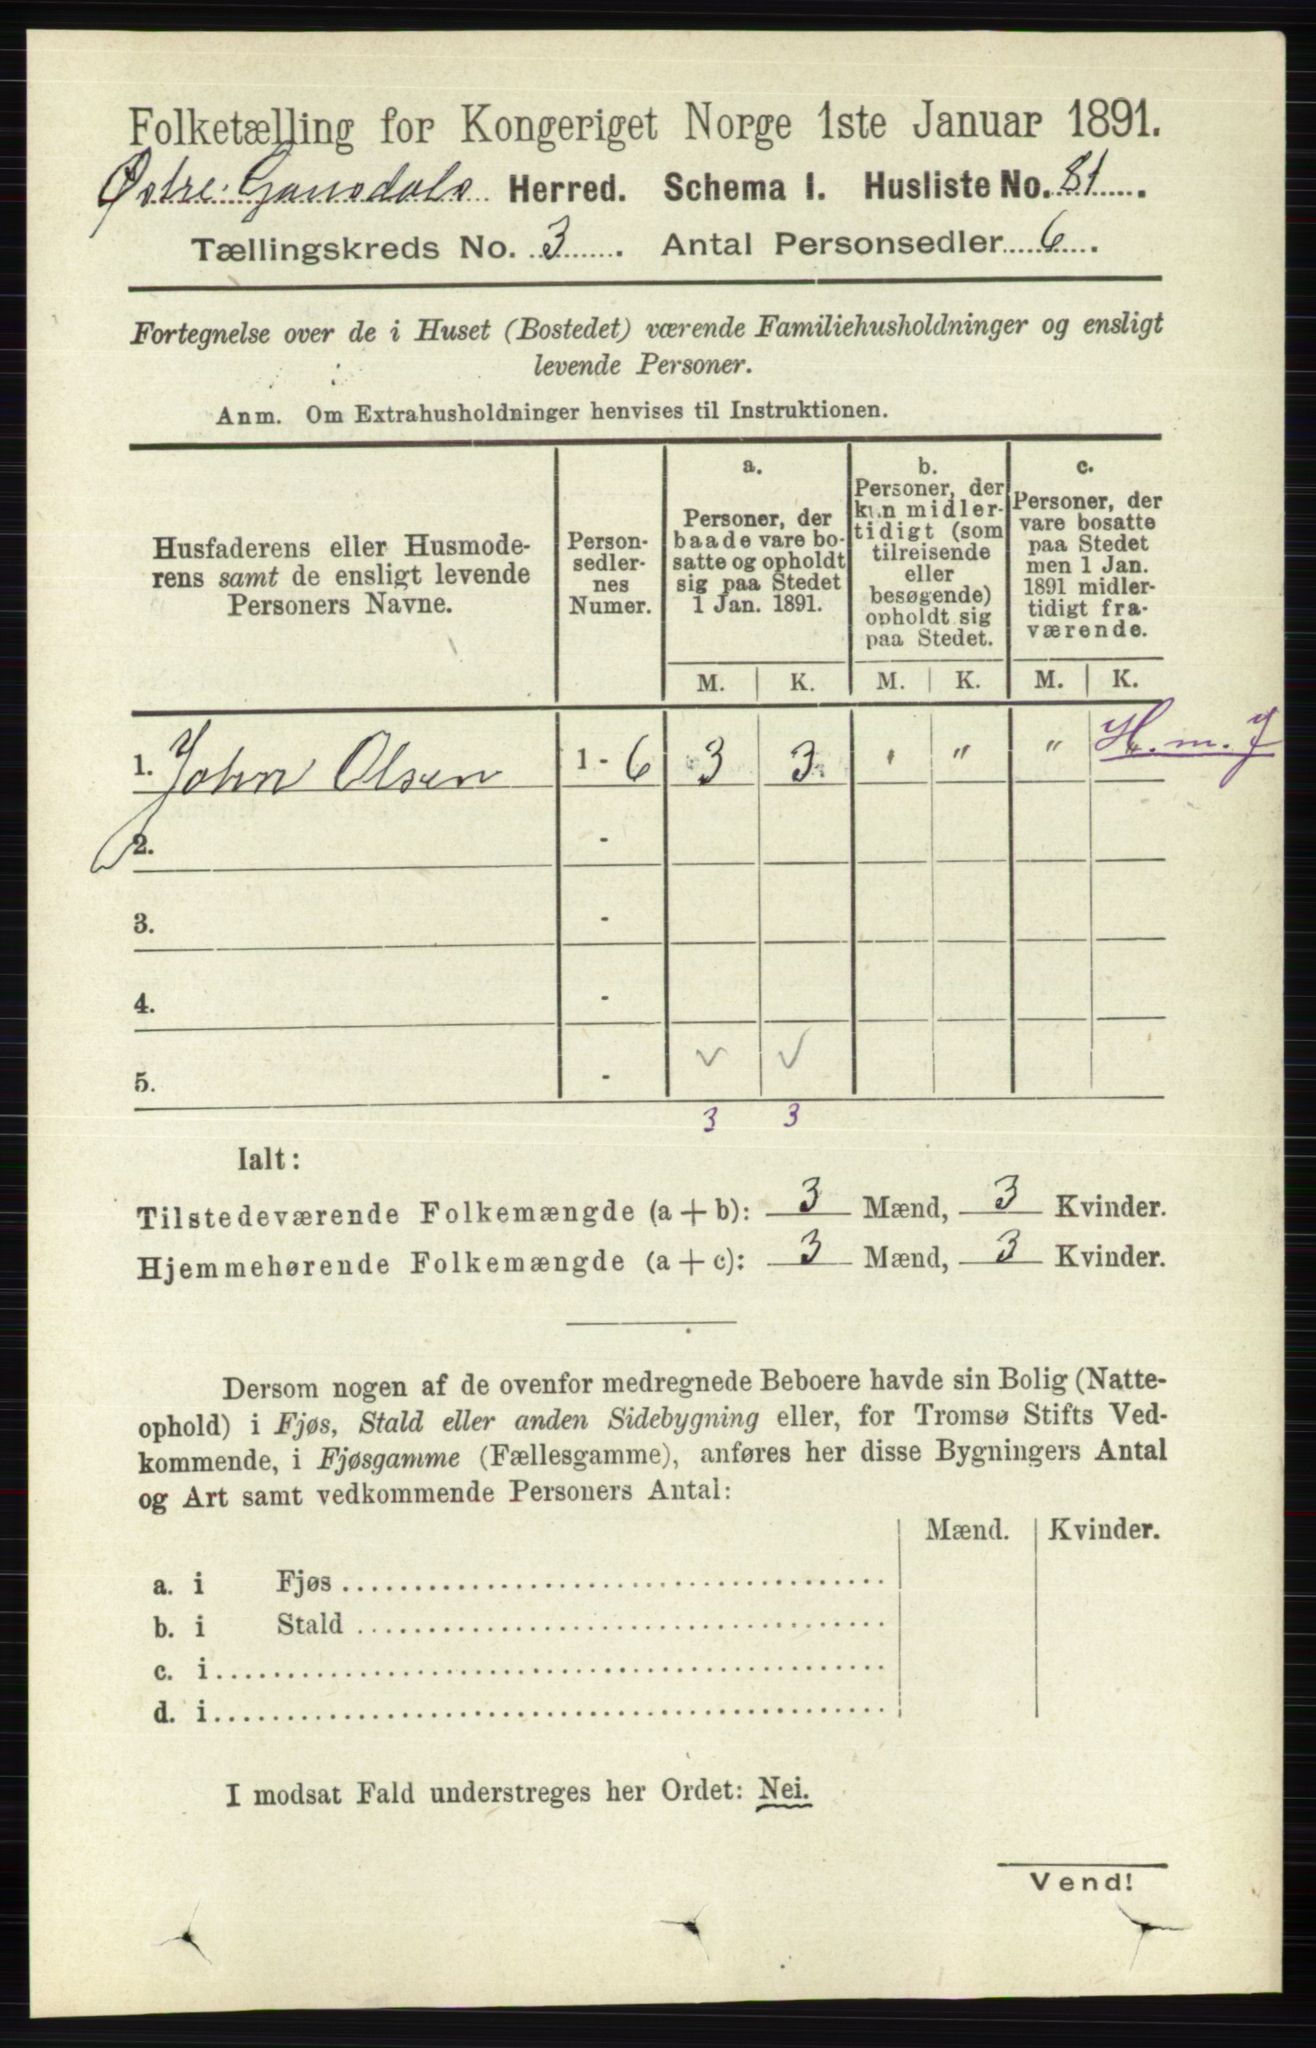 Folketælling for Kongeriget Norge 1ste Januar 1891.
Østre Gausdals Herred. Schema I. Husliste No. 81.
Tællingskreds No. 3. Antal Personsedler 6.
Fortegnelse over de i Huset (Bostedet) værende Familiehusholdninger og ensligt
levende Personer.
Anm. Om Extrahusholdninger henvises til Instruktionen.
Husfaderens eller Husmode-
rens samt de ensligt levende
Personers Navne.
Person-
sedler-
nes
Numer.
a.
Personer, der
baade vare bo-
satte og opholdt
sig paa Stedet
1 Jan. 1891.
b.
Personer, der
kun midler-
tidigt (som
tilreisende
eller
besøgende)
opholdt sig
paa Stedet.
c.
Personer, der
vare bosatte
paa Stedet
men 1 Jan.
1891 midler-
tidigt fra-
værende.
M. K. M. K. M. K.
1. John Olsen 1 - 6 3 3 " " " H. m. J
2. -
3. -
4. -
5. - ✓ ✓
3 3
Ialt:
Tilstedeværende Folkemængde (a + b): 3 Mænd, 3 Kvinder.
Hjemmehørende Folkemængde (a + c): 3 Mænd, 3 Kvinder.
Dersom nogen af de ovenfor medregnede Beboere havde sin Bolig (Natte-
ophold) i Fjøs, Stald eller anden Sidebygning eller, for Tromsø Stifts Ved-
kommende, i Fjøsgamme (Fællesgamme), anføres her disse Bygningers Antal
og Art samt vedkommende Personers Antal:
Mænd. Kvinder.
a. i Fjøs
b. i Stald
c. i
d. i
I modsat Fald understreges her Ordet: Nei.
Vend!